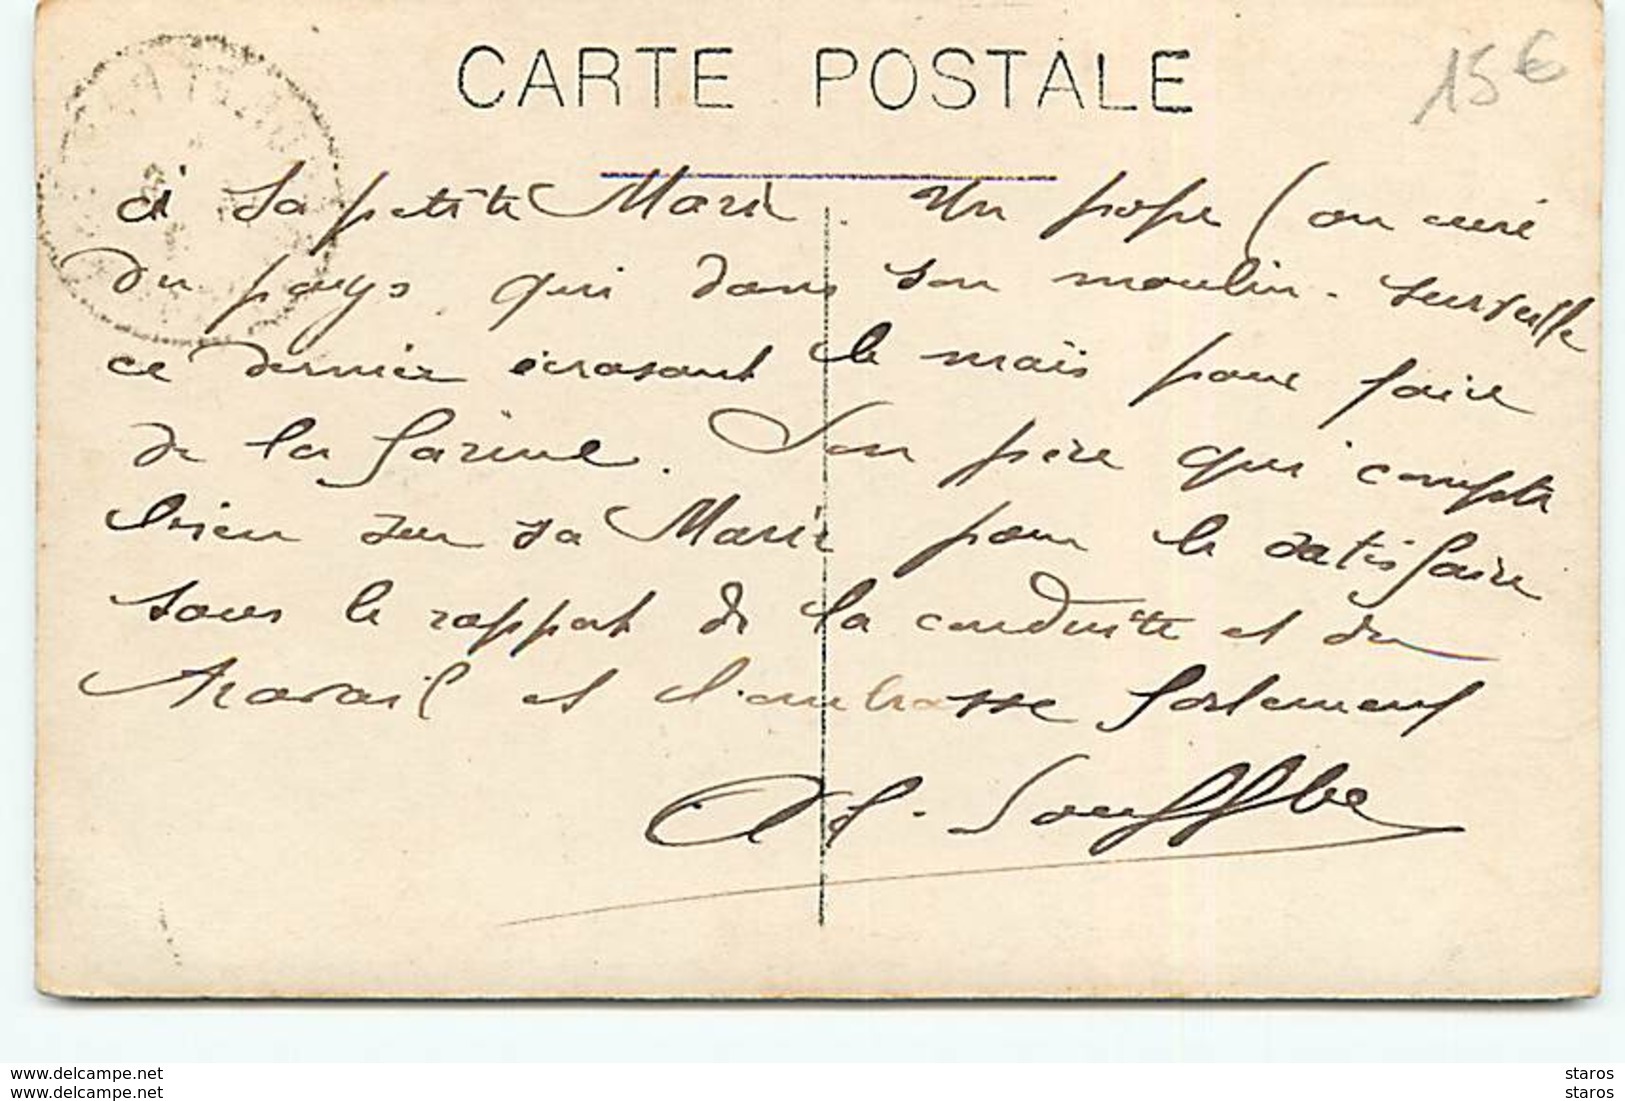 CARTE POSTALE
15 €
à la petite Marie. Un pope (ou curé
du pays qui dans son moulin. surveille
ce dernier écrasant le maïs pour faire
de la farine. Son père qui compte
bien sur sa Marie pour le satisfaire
sous le rapport de la conduite et du
travail et l'embrasse fortement
www.delcampe.net
www.delcampe.net
staros
staros